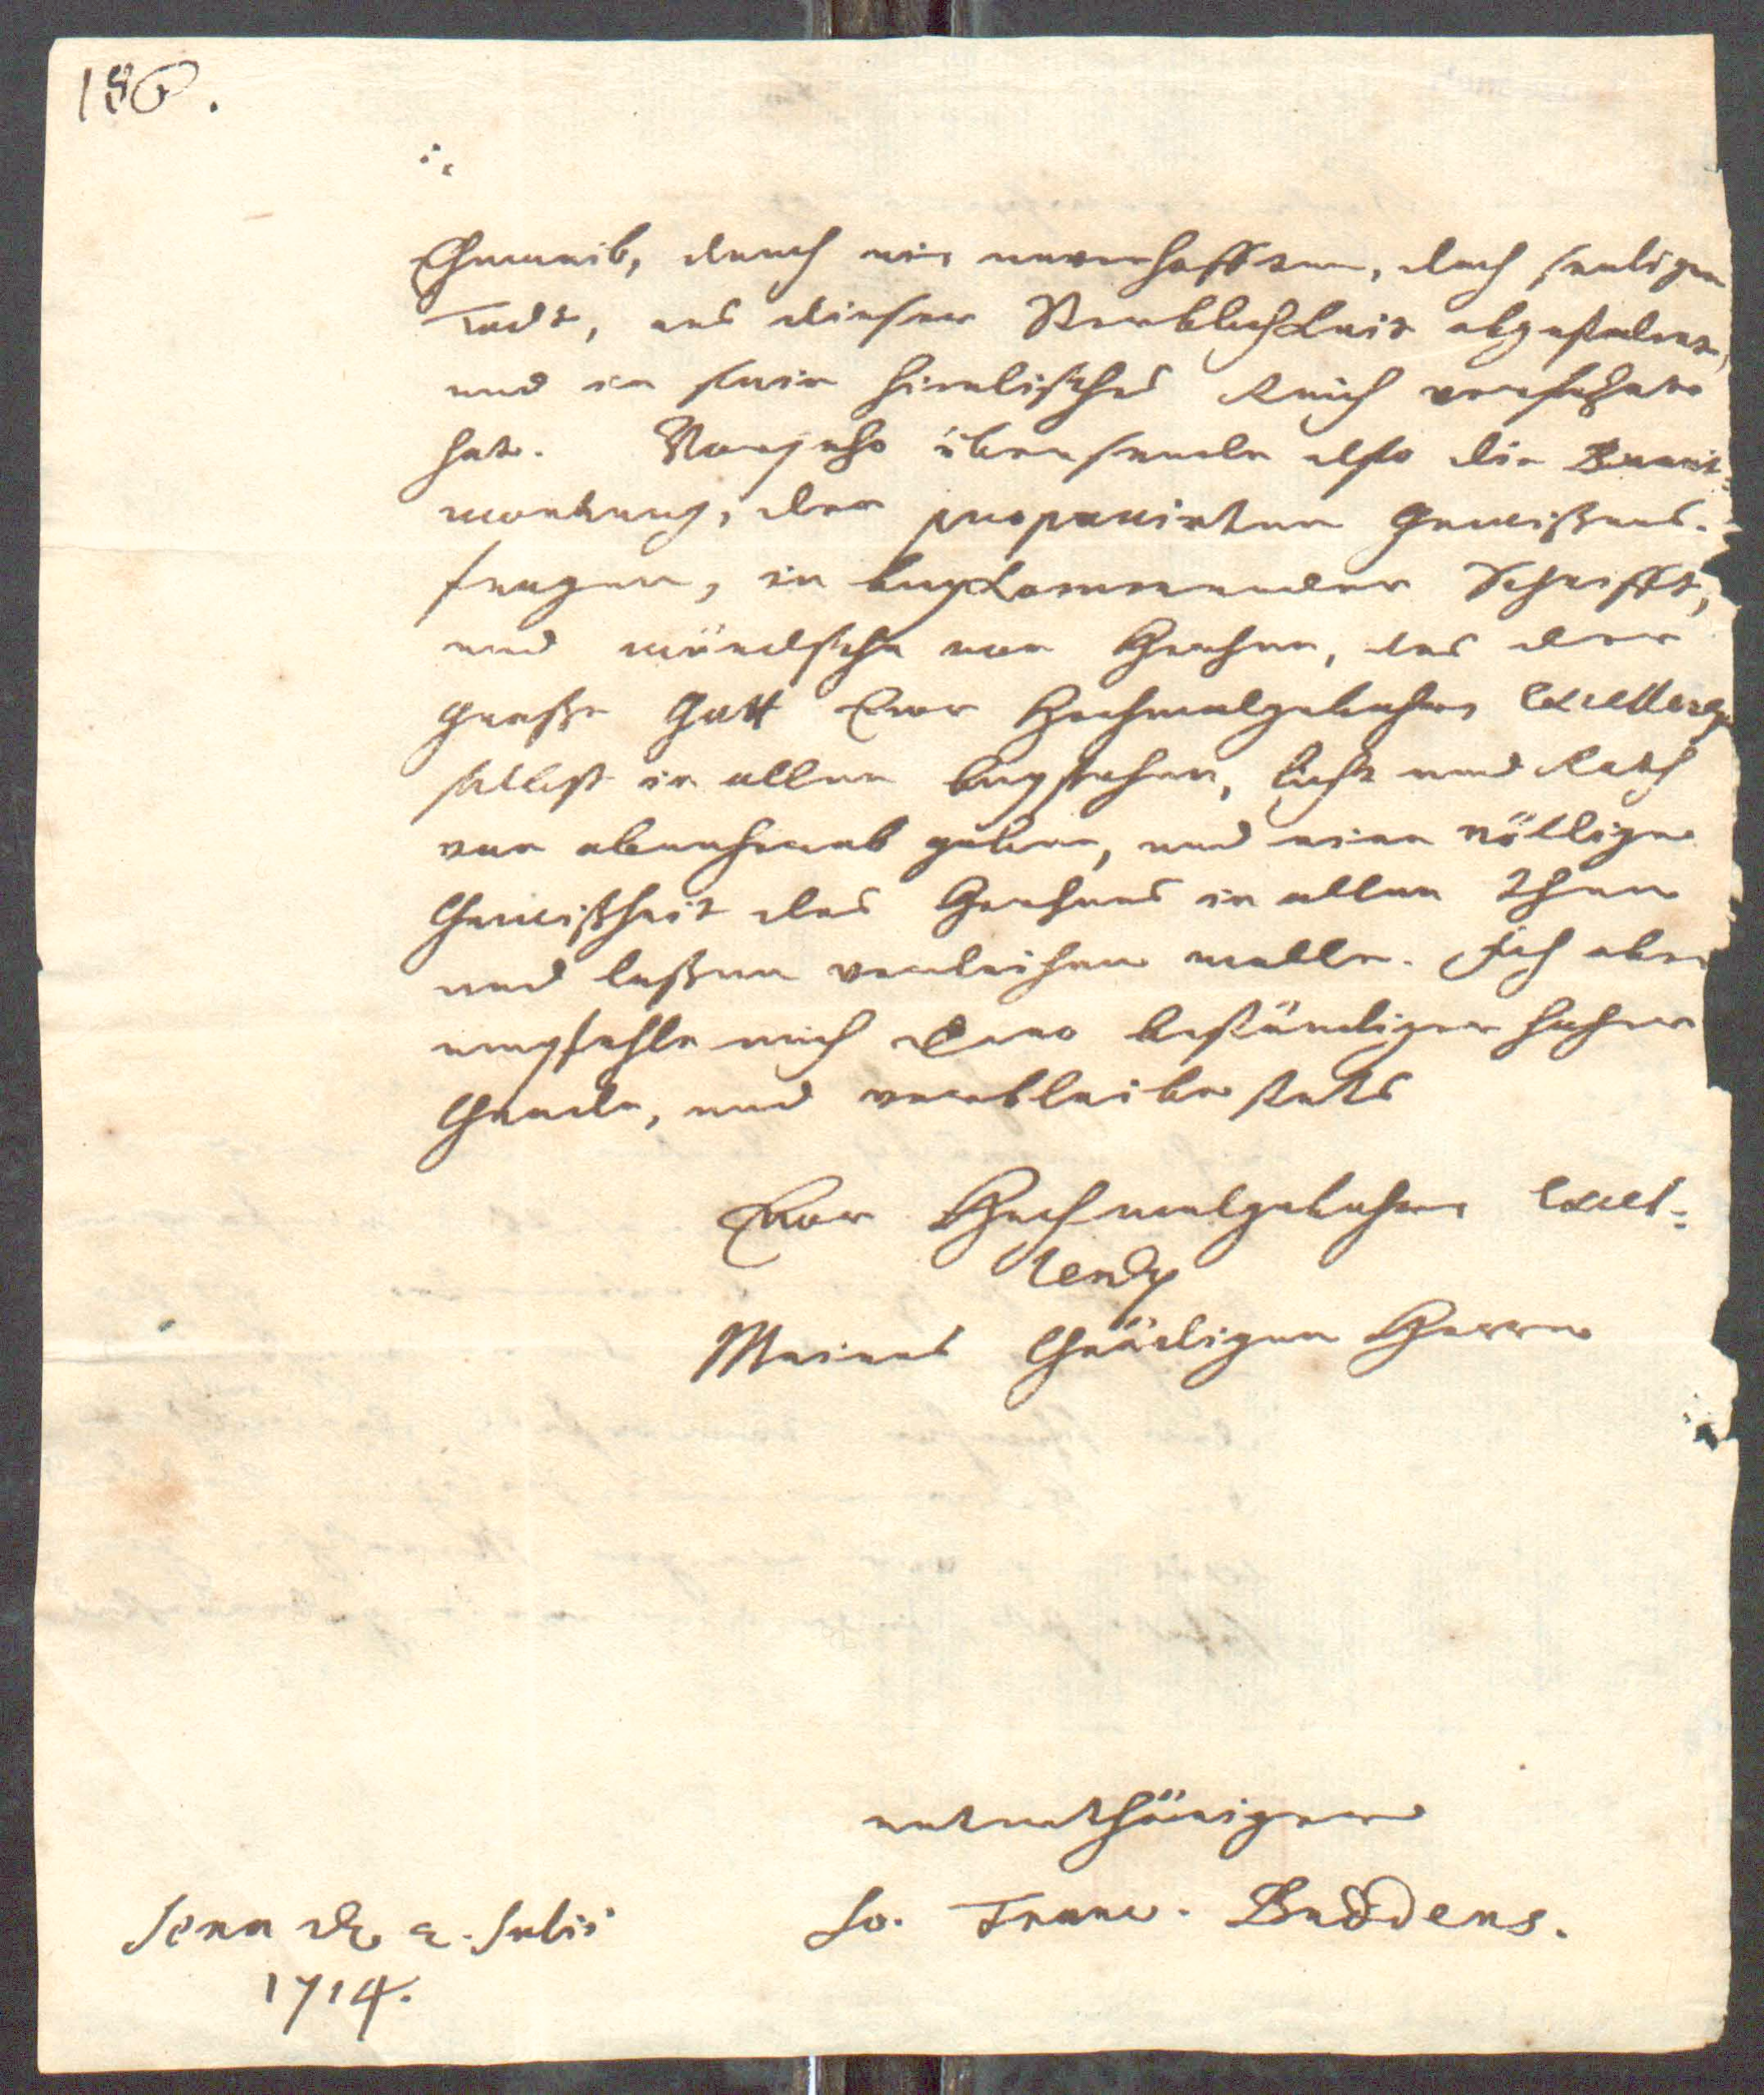 186.
Eheweib, durch ein unverhofften, doch seeligen
Todt, aus dieser Sterblichkeit abgefodert,
und in sein himlisches Reich versetzet
hat. Vorjetzo übersende also die Beant-
wortung, der proponirten Gewißens-
fragen, in beykommender Schrifft,
und wündsche von Hertzen, das der
große Gott Euer Hochwolgebohrne Excellenz
selbst in allen beystehen, Licht und Rath
von oben herab geben, und eine völlige
Gewißheit des Hertzens in allen thun
und laßen verleihen wolle. Ich aber
empfehle mich Dero beständigen hohen
Gnade, und verbleibe stets
Euer Hochwolgebohrne Excel-
lenz
Meines Gnädigen Herrn
unterthäniger
Jo. Franc. Buddeus.
Jena d. 2. Julii
1714.